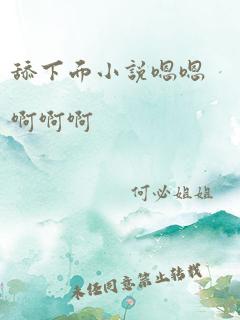 舔下面小說嗯嗯
啊啊啊
何必姐姐
未经同意禁止转载